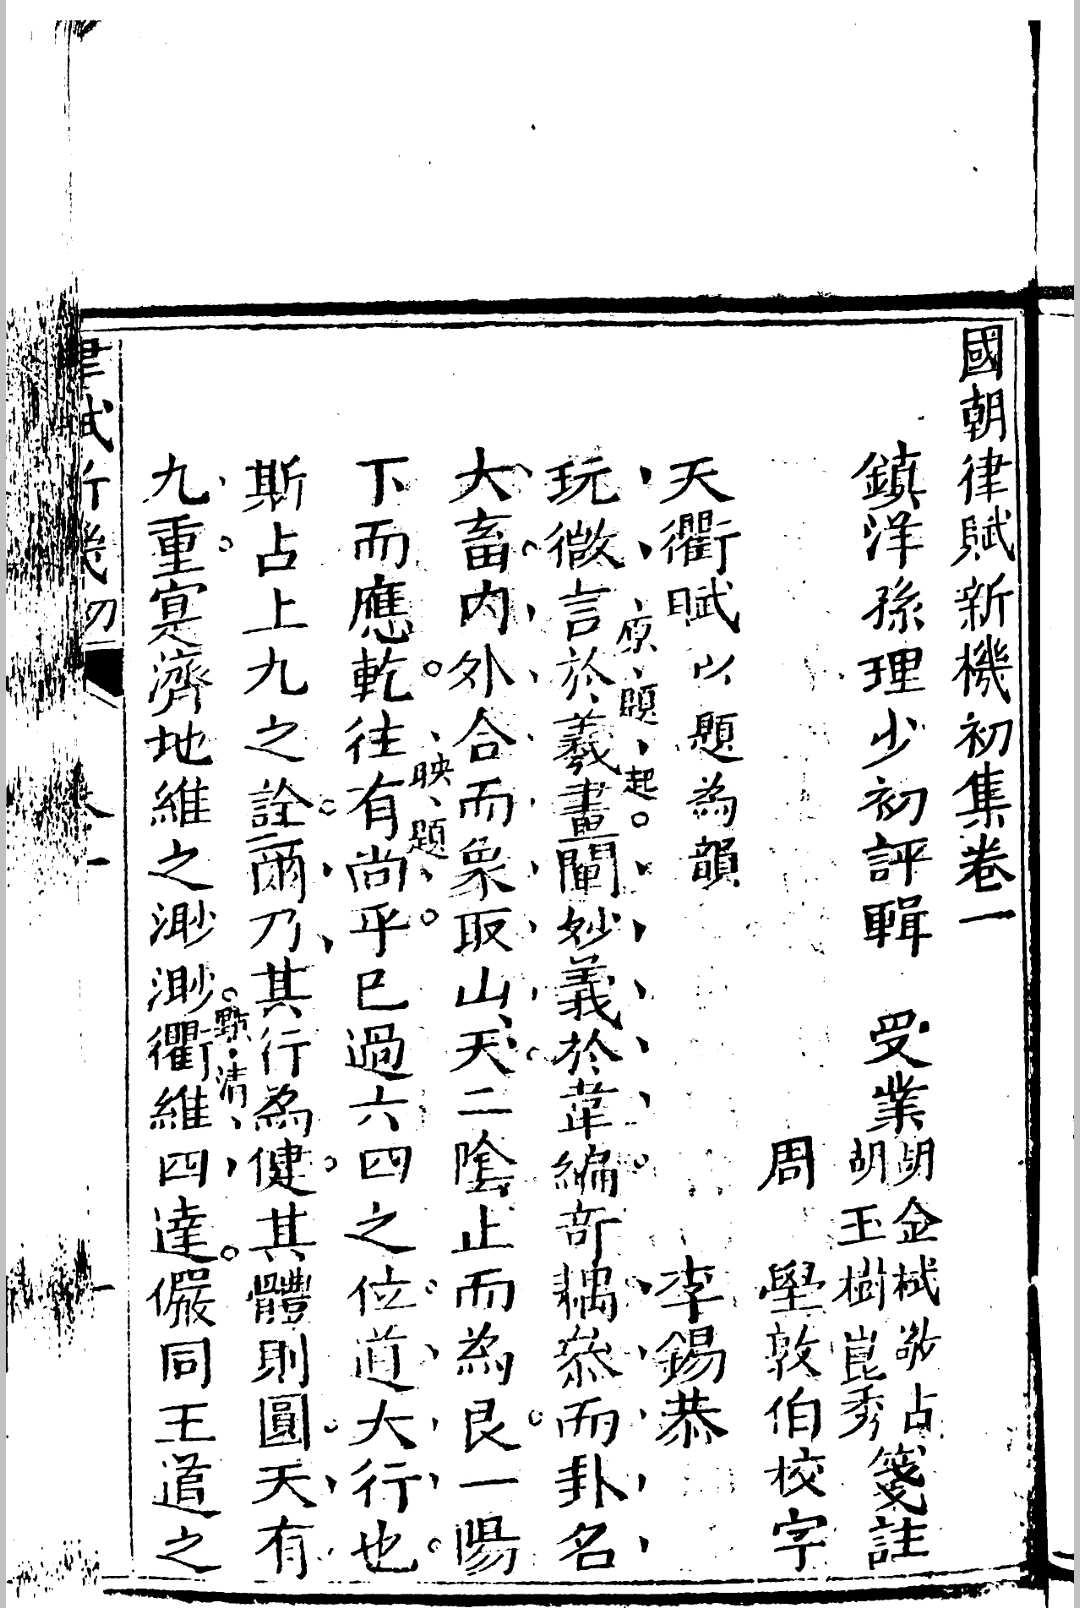 國朝律賦新機初集卷一
鎮洋孫理少初評輯　受業胡金棫敬占胡玉樹崑秀箋註
周　壆敦伯校字
天衢賦以題為韻　李錫恭
玩微言於羲畫闡妙義於韋編奇耦叅而卦名
原題起
大畜內外合而象取山天二陰止而為艮一陽
下而應乾往有尚乎已過六四之位道大行也
映題
斯占上九之詮爾乃其行為健其體則圓天有
九重寘濟地維之渺渺衢維四達儼同王道之
點清
律賦新幾初　卷一　一